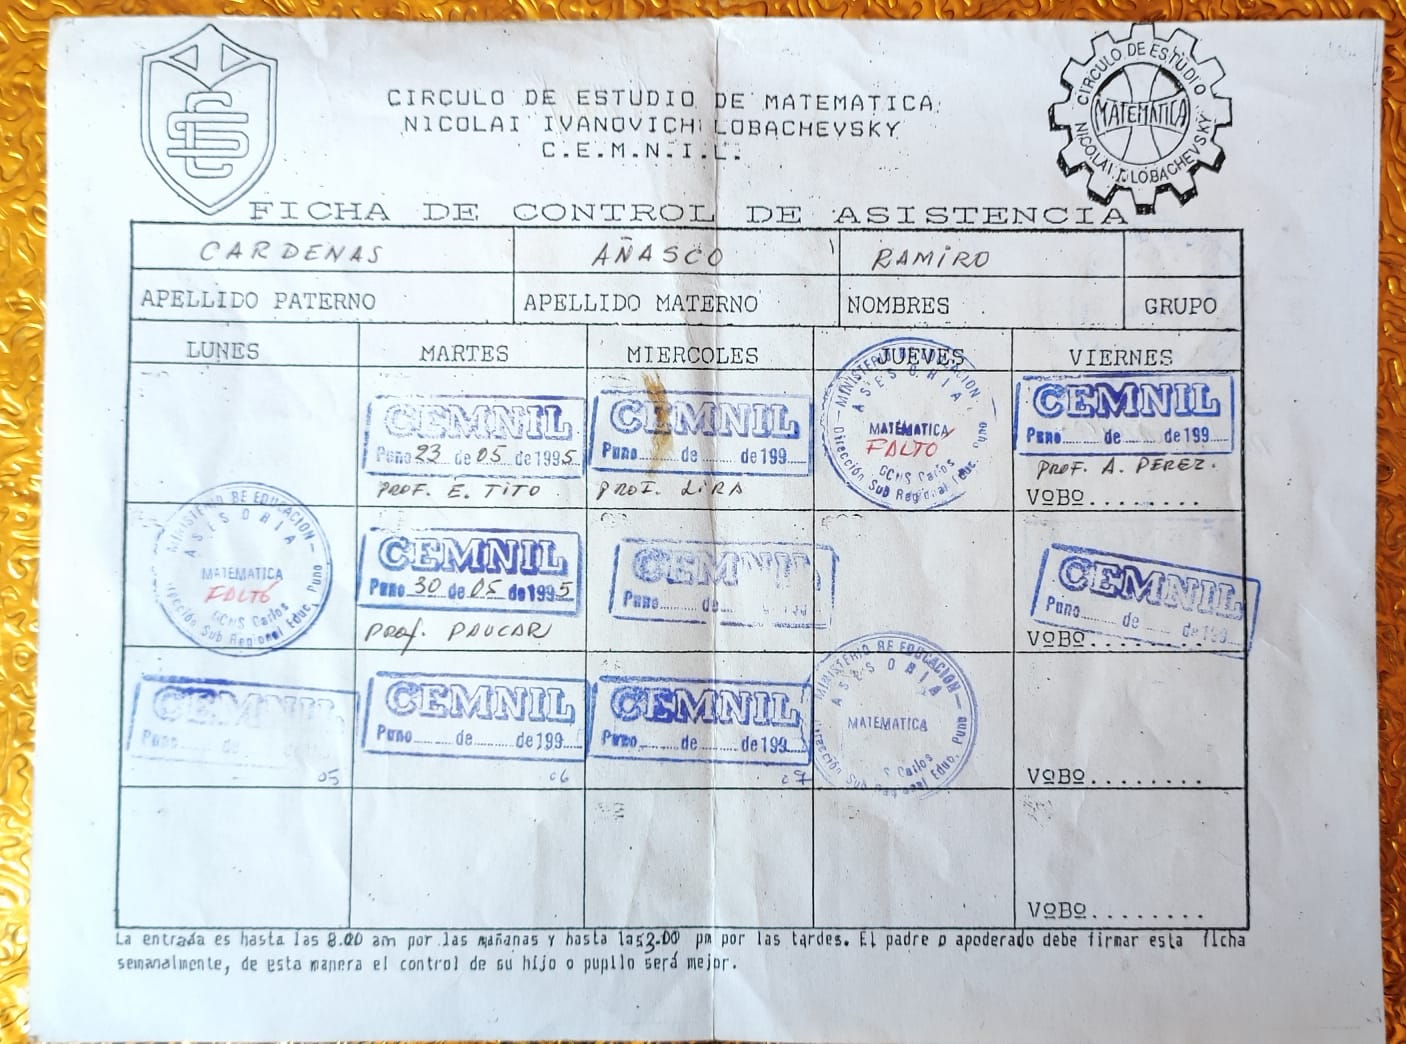 CIRCULO DE ESTUDIO DE MATEMATICA
NICOLAI IVANOVICH LOBACHEVSKY
C.E.M.N.I.L.
CIRCULO DE ESTUDIO
MATEMATICA
NICOLAI I. LOBACHEVSKY
FICHA DE CONTROL DE ASISTENCIA
CARDENAS AÑASCO RAMIRO
APELLIDO PATERNO APELLIDO MATERNO NOMBRES GRUPO
LUNES MARTES MIERCOLES JUEVES VIERNES
CEMNIL
Puno 23 de 05 de 1995
PROF. E. TITO
CEMNIL
Puno........ de ........ de 199....
PROF. LIRA
MINISTERIO DE EDUCACION
ASESORIA
MATEMATICA
FALTO
GCNS Carlos
Dirección Sub Regional Educ. Puno
CEMNIL
Puno........ de ........ de 199....
PROF. A. PEREZ.
VºBº........
MINISTERIO DE EDUCACION
ASESORIA
MATEMATICA
FALTÓ
GCNS Carlos
Dirección Sub Regional Educ. Puno
CEMNIL
Puno 30 de 05 de 1995
PROF. PAUCAR
CEMNIL
Puno........ de
CEMNIL
Puno........ de ........ de 199....
VºBº........
CEMNIL
Puno........ de ........ de
05
CEMNIL
Puno........ de ........ de 199....
06
CEMNIL
Puno........ de ........ de 199....
07
MINISTERIO DE EDUCACION
ASESORIA
MATEMATICA
S Carlos
Dirección Sub Regional Educ. Puno
VºBº........
VºBº........
La entrada es hasta las 8.00 am por las mañanas y hasta las 3.00 pm por las tardes. El padre o apoderado debe firmar esta ficha
semanalmente, de esta manera el control de su hijo o pupilo será mejor.